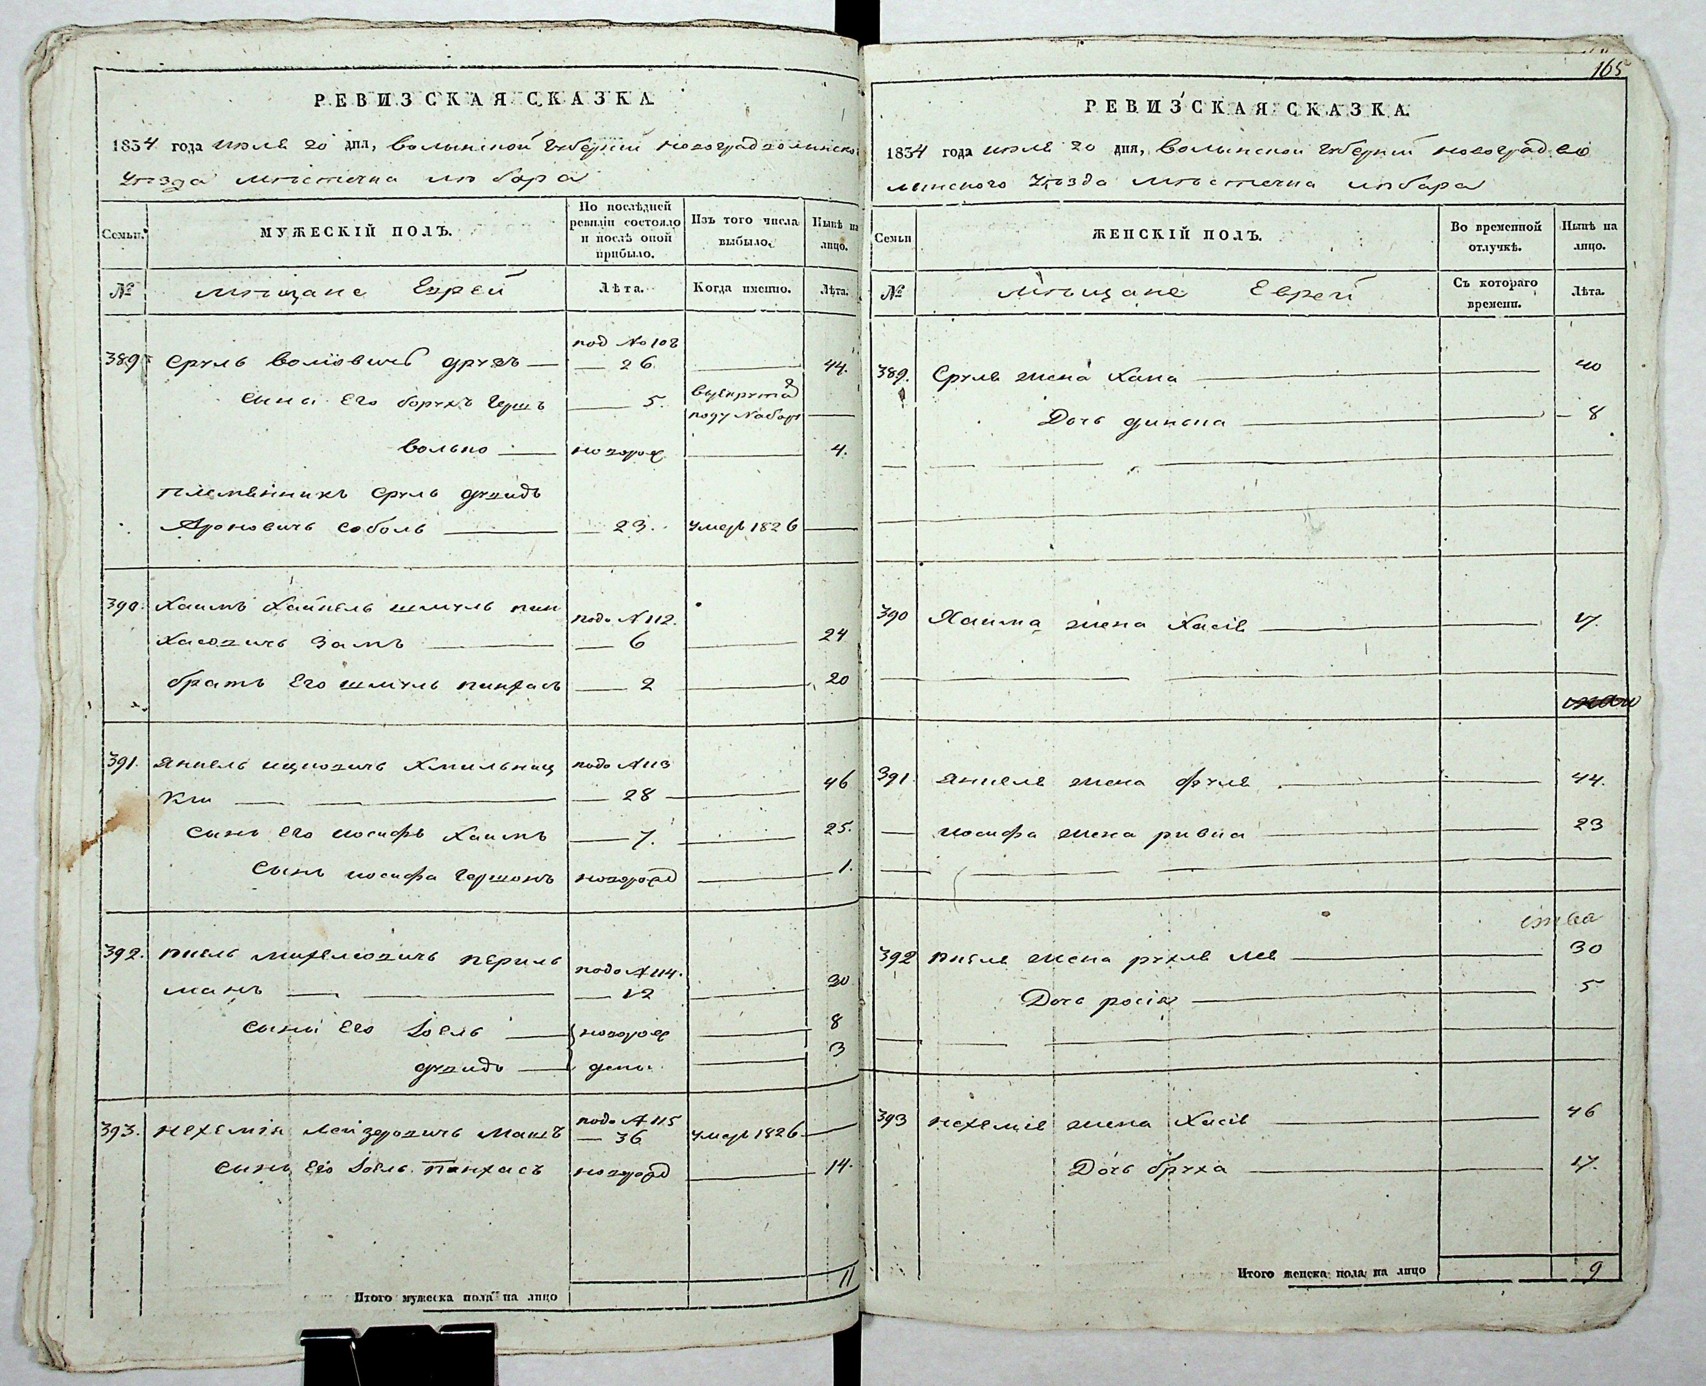 РЕВИЗСКАЯ СКАЗКА
1834 года июля 20 дня, волынской губерний новоградволинско
уѣзда мѣстечка любара
Семьи.
МУЖЕСКІЙ ПОЛЪ.
По послѣдней
ревизіи состояло
и послѣ оной
прибыло.
Изъ того числа
выбыло.
Нынѣ на
лицо.
№
Мѣщане Еврей
Лѣта.
Когда именно.
Лѣта.
389
под №108
Сруль волювичъ друзъ — 26 44.
сины Его борухъ Гершъ — 5.
волько — новорож 4.
племянникъ Сруль дувидъ
Ароновичъ соболь — 23. умеръ 1826
390.
Хаимъ Хайкель шмуль пин
подъ №112.
хасовичъ Замъ — 6 24
братъ Его шмуль пинхасъ — 2 20
391.
Янкель ицковичъ Хмильниц
подъ №113
кій — 28 46
сынъ его иосифъ Хаимъ — 7. 25.
Сынъ иосифа Гершонъ новорожд 1.
392.
михелювичъ перель
подъ №114.
манъ — 12 30
сыны Его Іосль — новорож 8
дувидъ — дены. 3
393.
подъ №115
Нехемія Лейзеровичъ Машъ — 36 умеръ 1826
сынъ Его Іосль пинхасъ новорожд 14.
Итого мужеска пола на лицо
11
165
РЕВИЗСКАЯ СКАЗКА.
1834 года июля 20 дня, волынской губерний новоград во
линского уѣзда мѣстечка любара
Семьи
ЖЕНСКІЙ ПОЛЪ.
Во временной
отлучкѣ.
Нынѣ на
лицо.
№
Мѣщане Еврей
Съ котораго
времени.
Лѣта.
389. Сруля жена Хана 40
Дочь 8
390 Хаима жена Хасія 17.
391. Янкеля жена фруля 44.
иосифа жена ривка 23
392 жена рухля лея 30
Дочь росія 5
393 Нехемія жена Хасія 46
Дочь бруха 17.
Итого женска пола на лицо
9